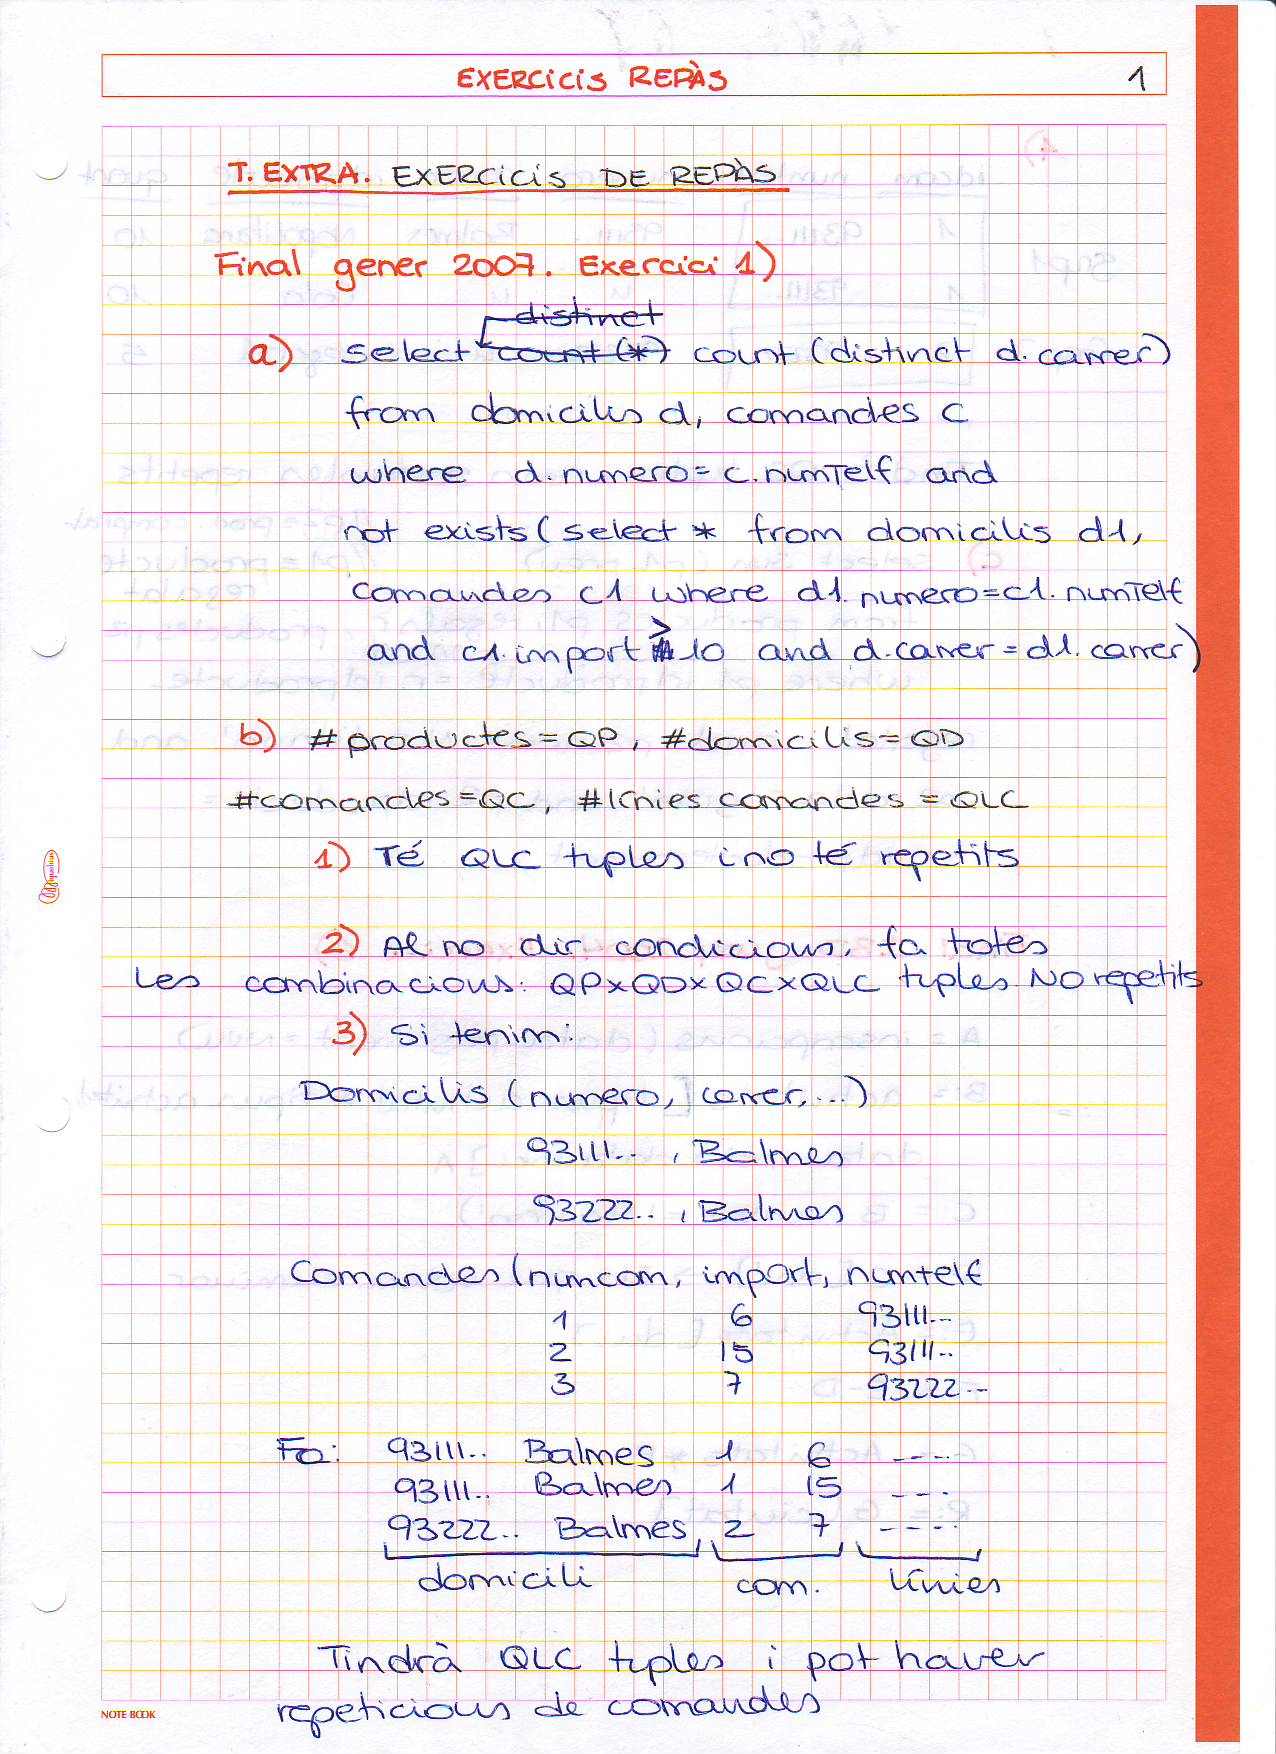 EXERCICIS REPÀS 1
T. EXTRA. EXERCICIS DE REPÀS
Final gener 2007. Exercici 1)
distinct
a) select count (*) count (distinct d.carrer)
from domicilis d, comandes c
where d.numero = c.numTelf and
not exists ( select * from domicilis d1,
comandes c1 where d1.numero=c1.numTelf
and c1.import > 10 and d.carrer = d1.carrer)
b) #productes = QP, #domicilis = QD
#comandes = QC, #línies comandes = QLC
1) Té QLC tuples i no té repetits
2) Al no dir condicions, fa totes
les combinacions: QPxQDxQCxQLC tuples NO repetits
3) Si tenim:
Domicilis (numero, carrer, ...)
93111.. , Balmes
93222.. , Balmes
Comandes (numcom, import, numtelf
1 6 93111...
2 15 93111..
3 7 93222..
Fa: 93111.. Balmes 1 6 ----
93111.. Balmes 1 15 ---
93222.. Balmes, 2 7 ----
domicili com. línies
Tindrà QLC tuples i pot haver
repeticions de comandes
NOTE BOOK